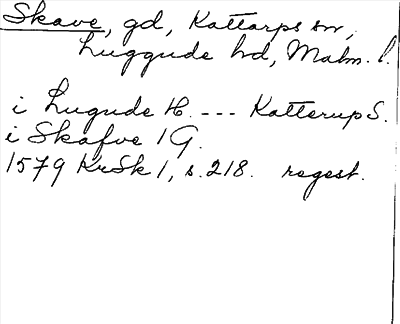 Skave, gd, Kattarps sn,
Luggude hd, Malm. l.
i Lugude H. --- Katterup S.
i Skafve 1 G.
1579 KrSk 1, s. 218. regest.